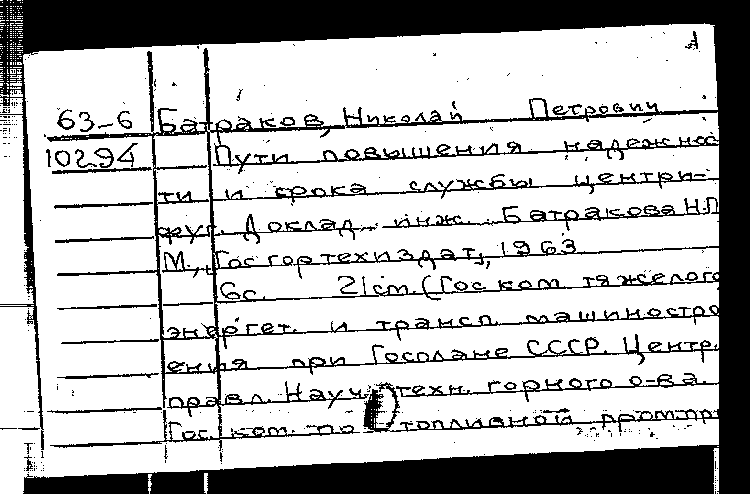 63-6 Батраков, Николай Петрович
10294 Пути повышения надежнос
ти и срока службы центри-
фуг. Доклад инж. Батракова Н.П
М., [Госгортехиздат], 1963
6с. 21см. (Гос ком тяжелого
энергет. и трансп. машиностро
ения при Госплане СССР. Центр.
правл. Науч. техн. горного о-ва.
Гос. ком. по топливной промпр